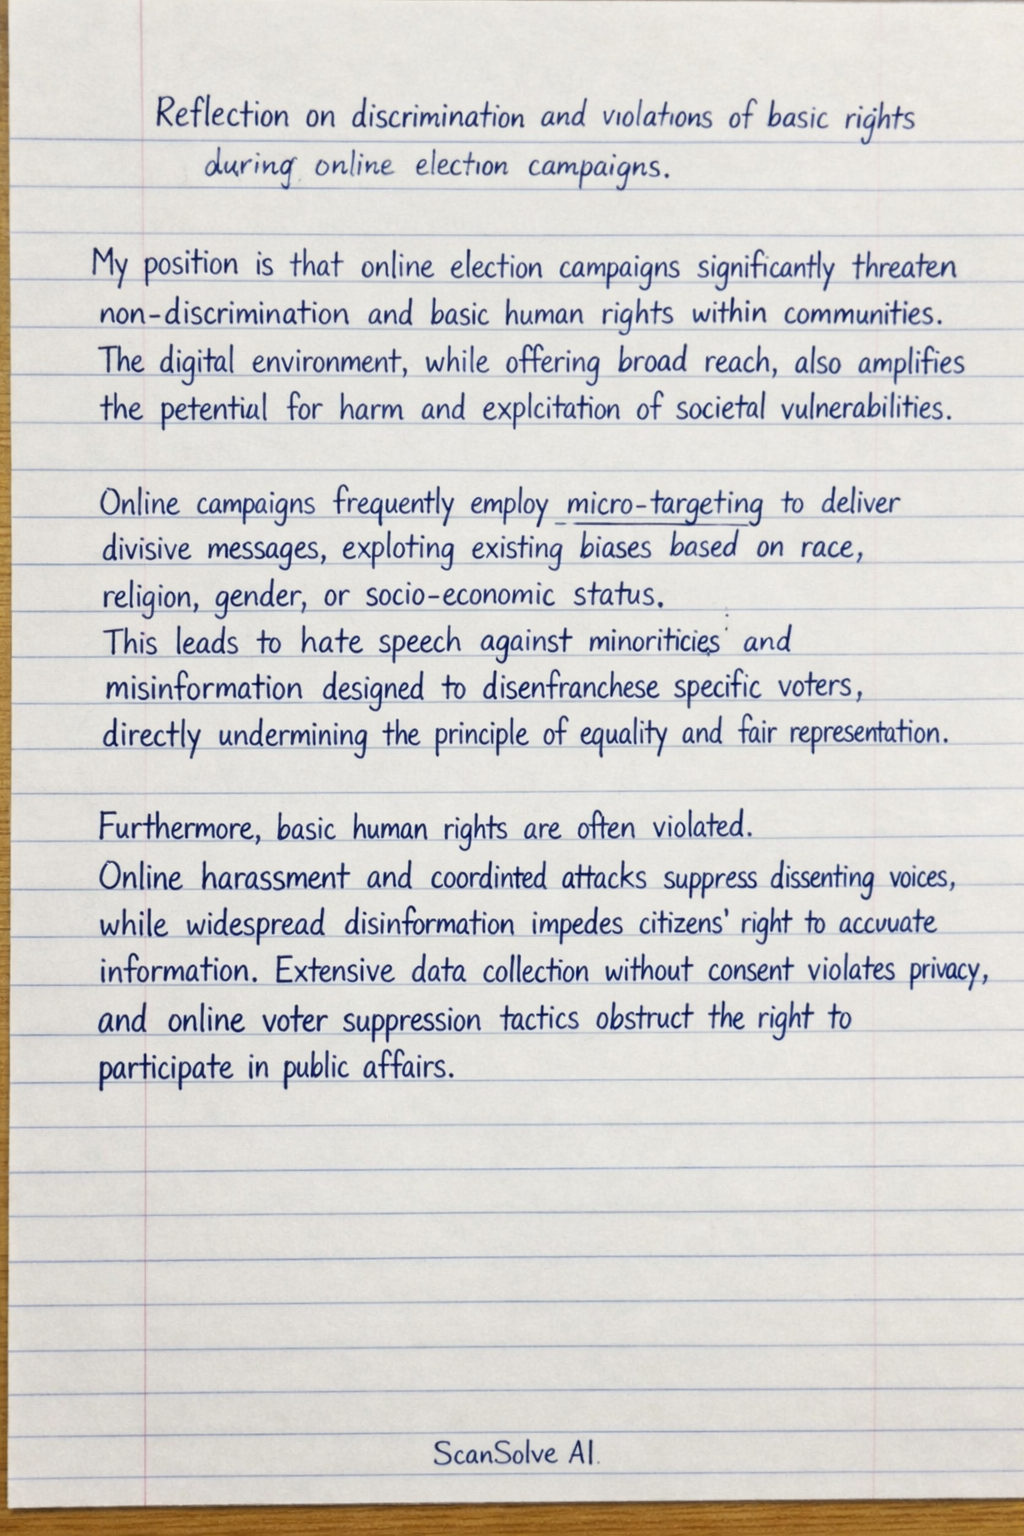 Reflection on discrimination and violations of basic rights
during online election campaigns.
My position is that online election campaigns significantly threaten
non-discrimination and basic human rights within communities.
The digital environment, while offering broad reach, also amplifies
the petential for harm and explcitation of societal vulnerabilities.
Online campaigns frequently employ micro-targeting to deliver
divisive messages, exploting existing biases based on race,
religion, gender, or socio-economic status.
This leads to hate speech against minoriticies and
misinformation designed to disenfranchese specific voters,
directly undermining the principle of equality and fair representation.
Furthermore, basic human rights are often violated.
Online harassment and coordinted attacks suppress dissenting voices,
while widespread disinformation impedes citizens' right to accuuate
information. Extensive data collection without consent violates privacy,
and online voter suppression tactics obstruct the right to
participate in public affairs.
ScanSolve AI.